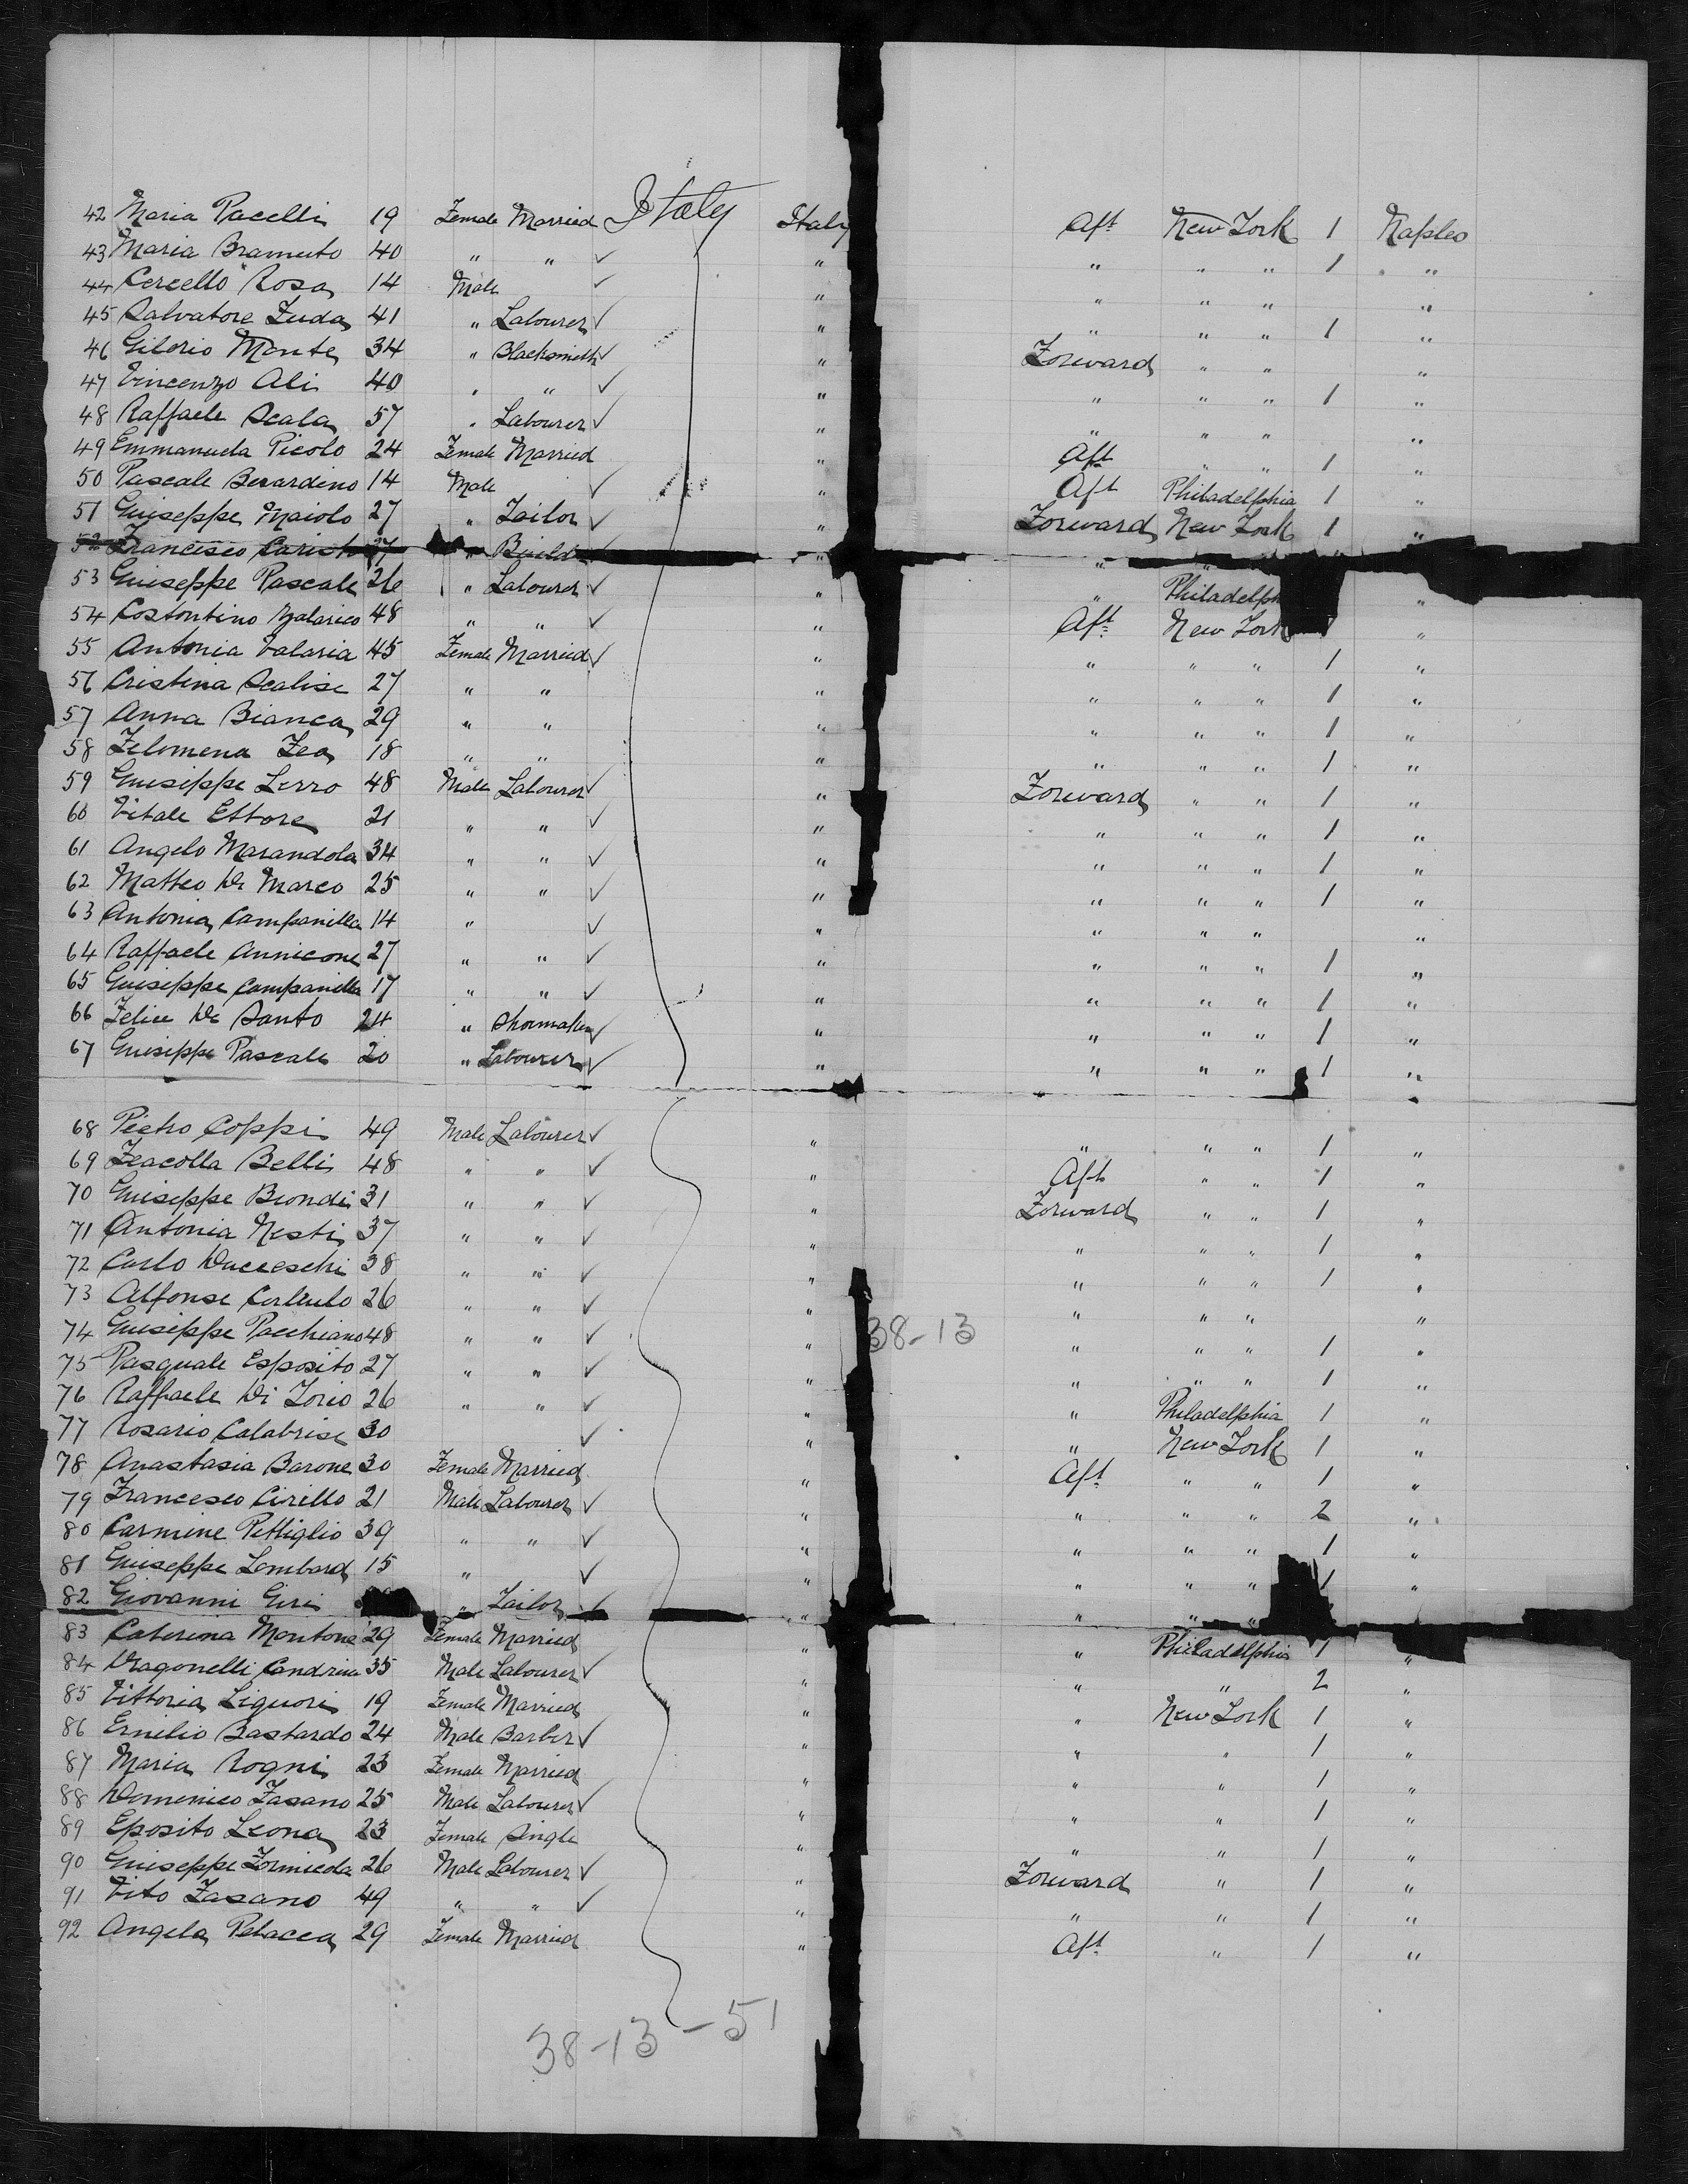 42 Maria Pacelli 19 Female Married Italy Italy Aft New York 1 Naples
43 Maria Bramuto 40 " " ✓ " " " " 1 "
44 Cercello Rosa 14 Male ✓ " " " " "
45 Salvatore Zuda 41 " Labourer ✓ " " " " 1 "
46 Gilorio Monte 34 " Blacksmith ✓ " Forward " " "
47 Vincenzo Ali 40 " " ✓ " " " " 1 "
48 Raffaele Scala 57 " Labourer ✓ " " " " "
49 Emmanuela Picolo 24 Female Married " Aft " " 1 "
50 Pascale Berardino 14 Male ✓ " Aft Philadelphia 1 "
51 Guiseppe Maiolo 27 " Tailor ✓ " Forward New York 1 "
52 Francisco 37 " " " "
53 Guiseppe Pascale 26 " Labourer ✓ " " "
54 Costontino 48 " " ✓ " Aft New York "
55 Antonia Valaria 45 Female Married ✓ " " " " 1 "
56 Cristina Scalise 27 " " " " " " 1 "
57 Anna Bianca 29 " " " " " " 1 "
58 Filomena Fea 18 " " " " " " 1 "
59 Guiseppe Serro 48 Male Labourer ✓ " Forward " " 1 "
60 Vitale Ettore 21 " " ✓ " " " " 1 "
61 Angelo Marandola 34 " " ✓ " " " " 1 "
62 Matteo Di Marco 25 " " ✓ " " " " 1 "
63 Antonia Campanilla 14 " ✓ " " " " "
64 Raffaele Annicone 27 " " ✓ " " " " 1 "
65 Guiseppe Campanilla 17 " " ✓ " " " " 1 "
66 Felice De Santo 24 " Shoemaker ✓ " " " " 1 "
67 Guiseppe Pascale 20 " Labourer ✓ " " " " 1 "
68 Pietro Coppi 49 Male Labourer ✓ " " " " 1 "
69 Feacolla Belli 48 " " ✓ " Aft " " 1 "
70 Guiseppe Biondi 31 " " ✓ " Forward " " 1 "
71 Antonia Nesti 37 " " ✓ " " " " 1 "
72 Carlo Ducceschi 38 " " ✓ " " " " 1 "
73 Alfonse 26 " " ✓ " " " " "
74 Guiseppe Pacchiano 48 " " ✓ " 38-13 " " " 1 "
75 Pasquale Esposito 27 " " ✓ " " " " 1 "
76 Raffaele Di Iorio 26 " " ✓ " " Philadelphia 1 "
77 Rosario Calabrise 30 ✓ " " New York 1 "
78 Anastasia Barone 30 Female Married " Aft " " 1 "
79 Francesco Cirillo 21 Male Labourer ✓ " " " " 2 "
80 Carmine Pettiglio 39 " " ✓ " " " " 1 "
81 Guiseppe Lombard 15 " ✓ " " " " 1 "
82 Giovanni Giri " Tailor ✓ " " " "
83 Caterina Montone 29 Female Married " " Philadelphia 1 "
84 Dragonelli 35 Male Labourer ✓ " " " 2 "
85 Vittoria Liguori 19 Female Married " " New York 1 "
86 Emilio Bastardo 24 Male Barber ✓ " " " 1 "
87 Maria Rogni 23 Female Married " " " 1 "
88 Domenico Fasano 25 Male Labourer ✓ " " " 1 "
89 Eposito Leona 23 Female Single " " " 1 "
90 Guiseppe Formicola 26 Male Labourer ✓ " Forward " 1 "
91 Vito Fasano 49 " " ✓ " " " 1 "
92 Angela Pelacca 29 Female Married " Aft " 1 "
38-13-51